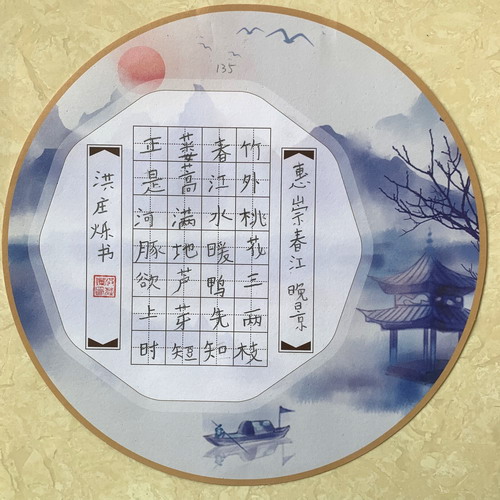 135
惠崇春江晚景
竹外桃花三两枝
春江水暖鸭先知
蒌蒿满地芦芽短
正是河豚欲上时
洪庄烁书